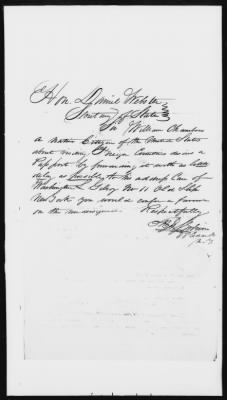 Hon. Daniel Webster
Secretary of State
Sir William Chambers
a native Citizen of the United States
about visiting Foreign Countries desires a
Passport by forwarding it with as little
delay as possible to his address Care of
Washington L. 11 Old Slip
New York you would confer a favour
on the undersigned. Respectfully